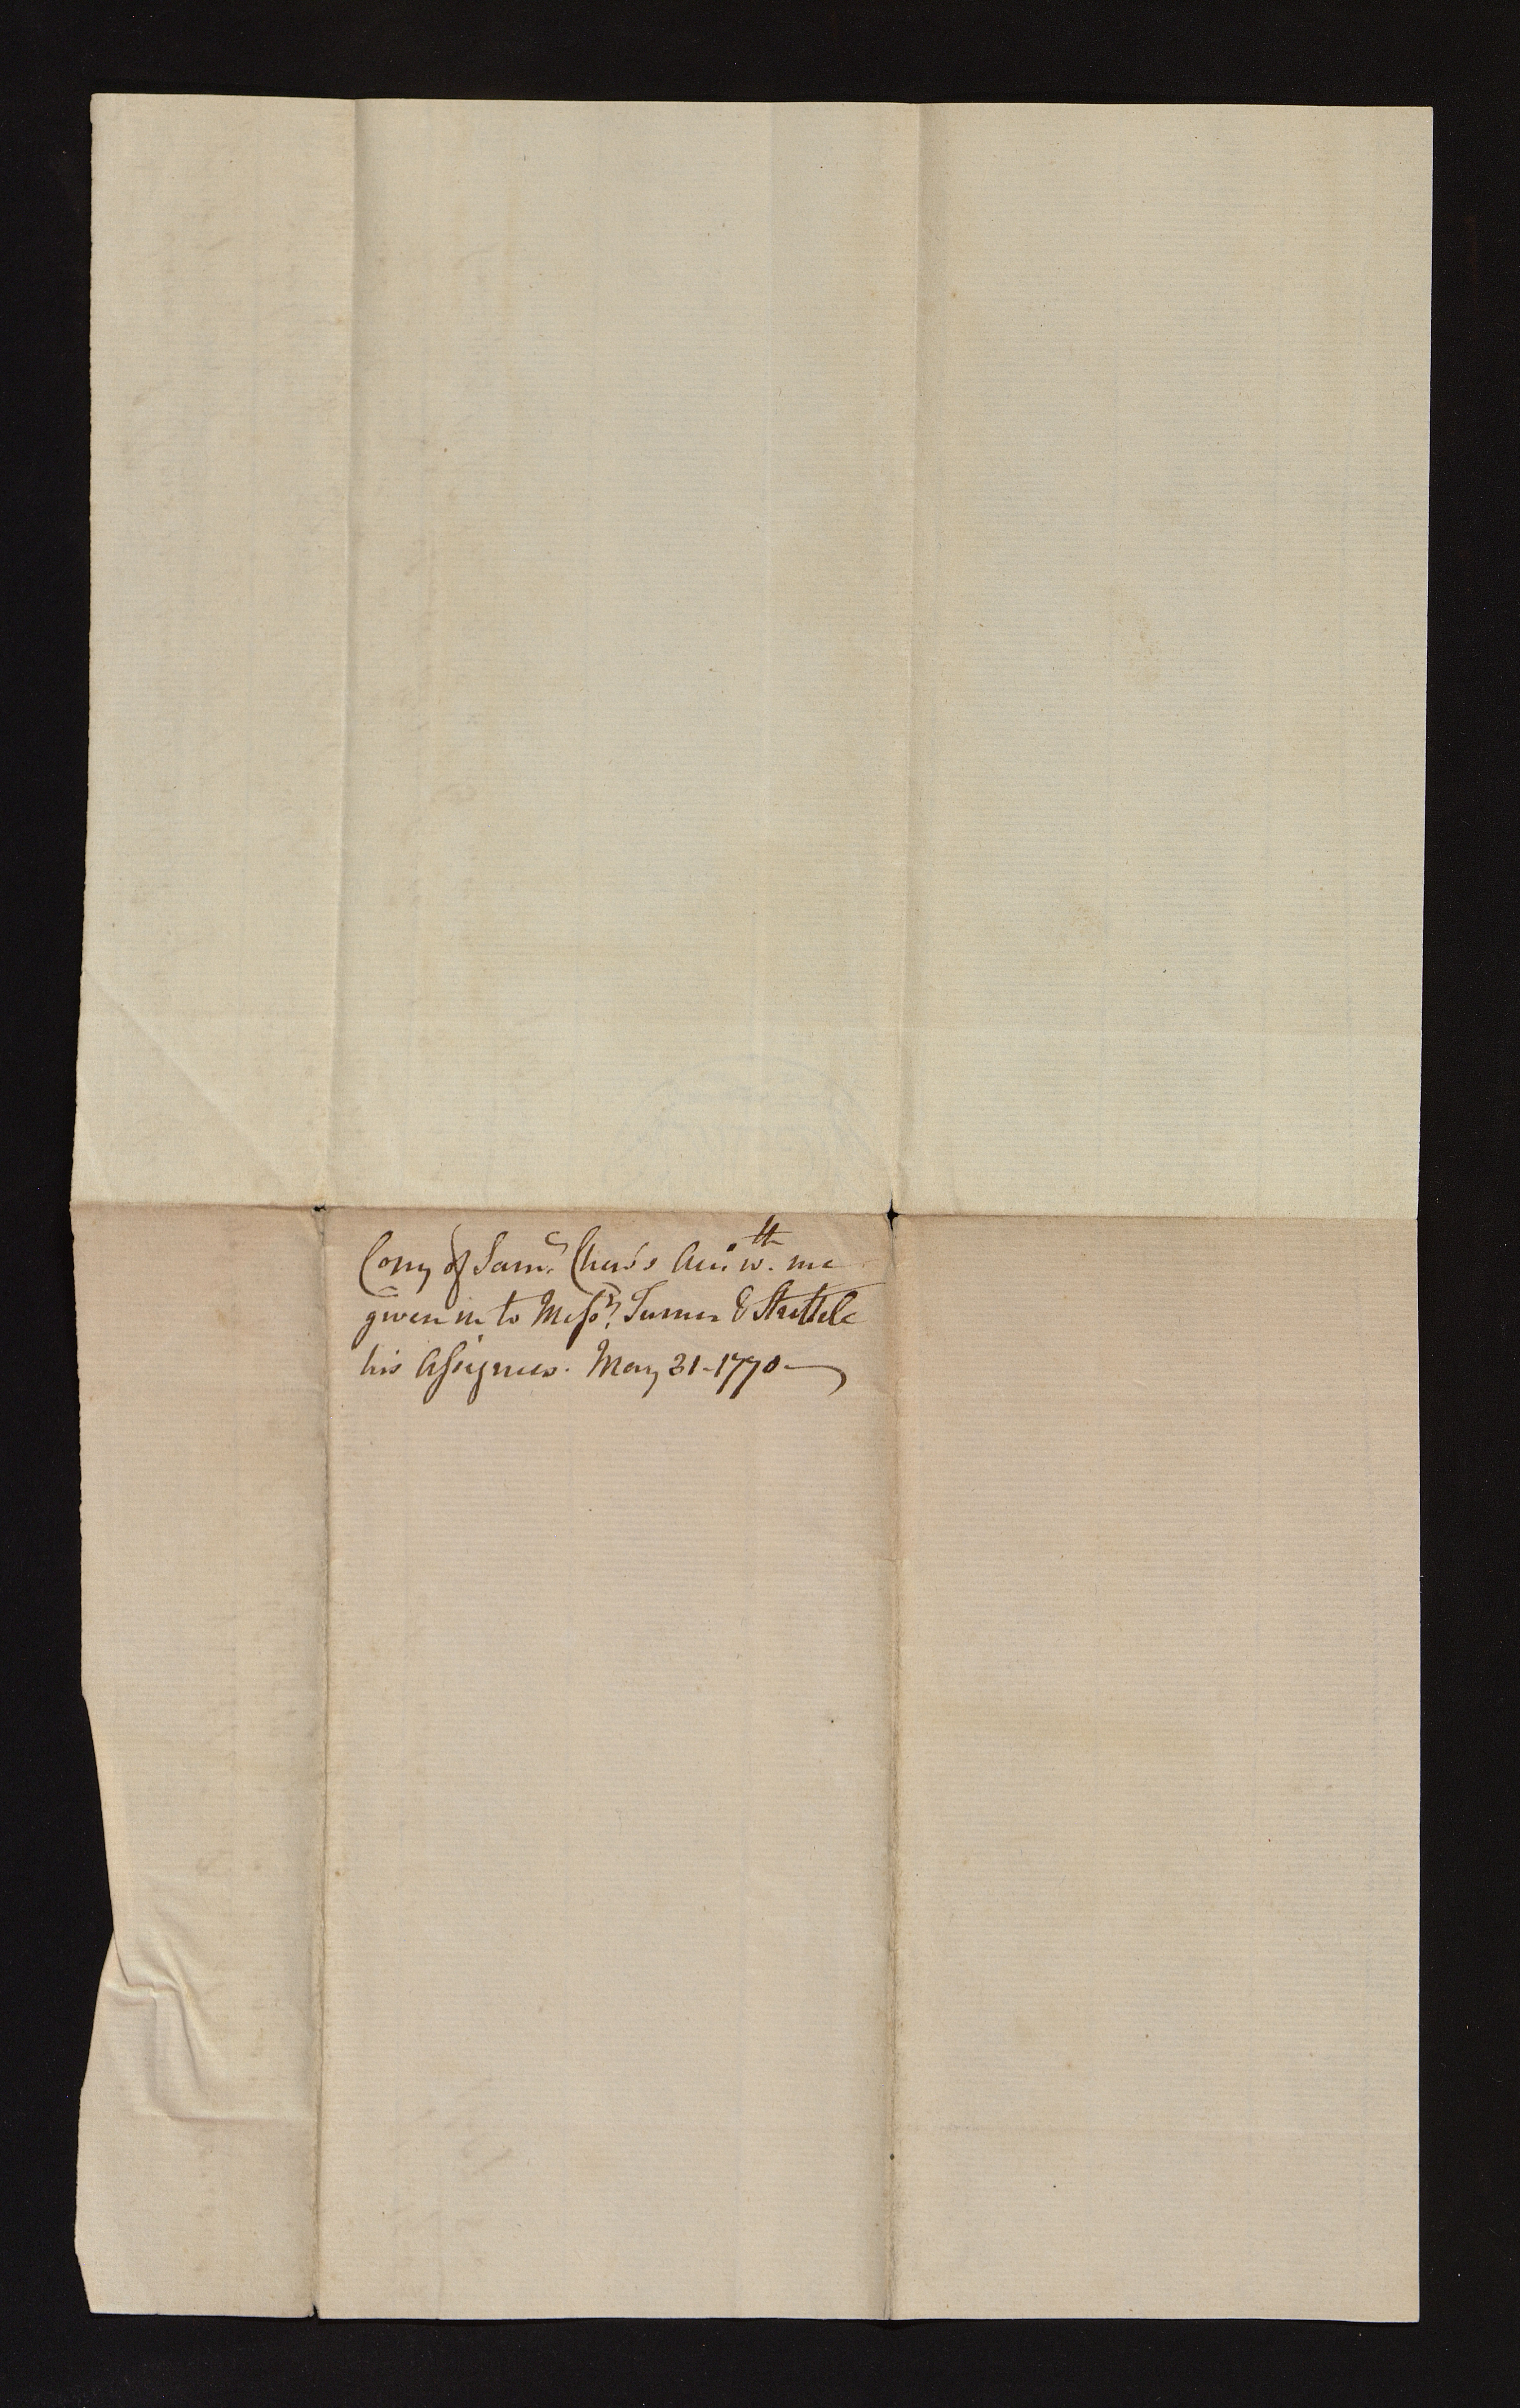 Copy of Sam.l Chew's Acc.t w.th me
given in to Mess.rs Turner & Strettle
his Assignees. May 31-1770-